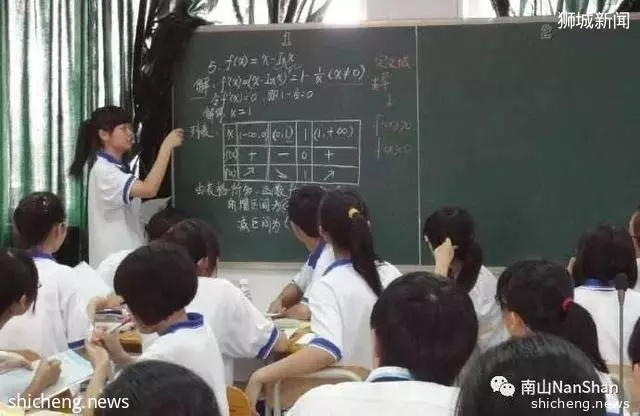 狮城新闻
1
2
5. f(x) = x - lnx
解: f'(x)=(x-lnx)'=1-1/x (x≠0)
令f'(x)=0, 即1-1/x=0
解得 x=1
列表:
x (-∞,0) (0,1) 1 (1,+∞)
f'(x) + - 0 +
f(x) ↗ ↘ 1 ↗
由表格可知, 函数f
减区间为(
定义域
求导
↓
南山NanShan
shicheng.news
shicheng.news